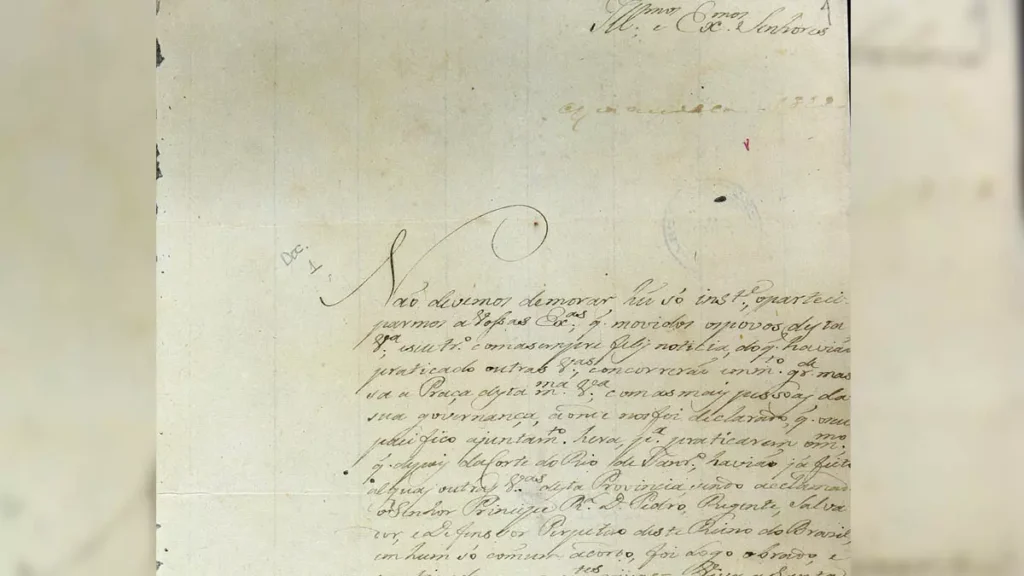 Ill.mos e Ex.mos Senhores
1822
Doc.
1
Não devemos demorar hũ só inst.e o parteci-
parmos a Vossas Ex.as q. movidos os povos desta
V.a e seu tr.o com a sempre feliz noticia, do q. havião
praticado outras V.as, concorrerão im m.to gr.de mas
sa a Praça desta m.ma V.a com as mais pessoas da
sua governança, aonde nos foi declarado, q. o seu
pacifico ajuntam.to hera p.a praticarem o m.mo
q. depois da Corte do Rio de Janr.o, havião já feito
alguas outras V.as desta Provincia sendo acclamado
o Senhor Principe R.l D. Pedro, Regente, Salva
e Defensor Perpetuo deste Reino do Brasil
em hum só comum acordo, foi logo obrado, e
Viva a Santa